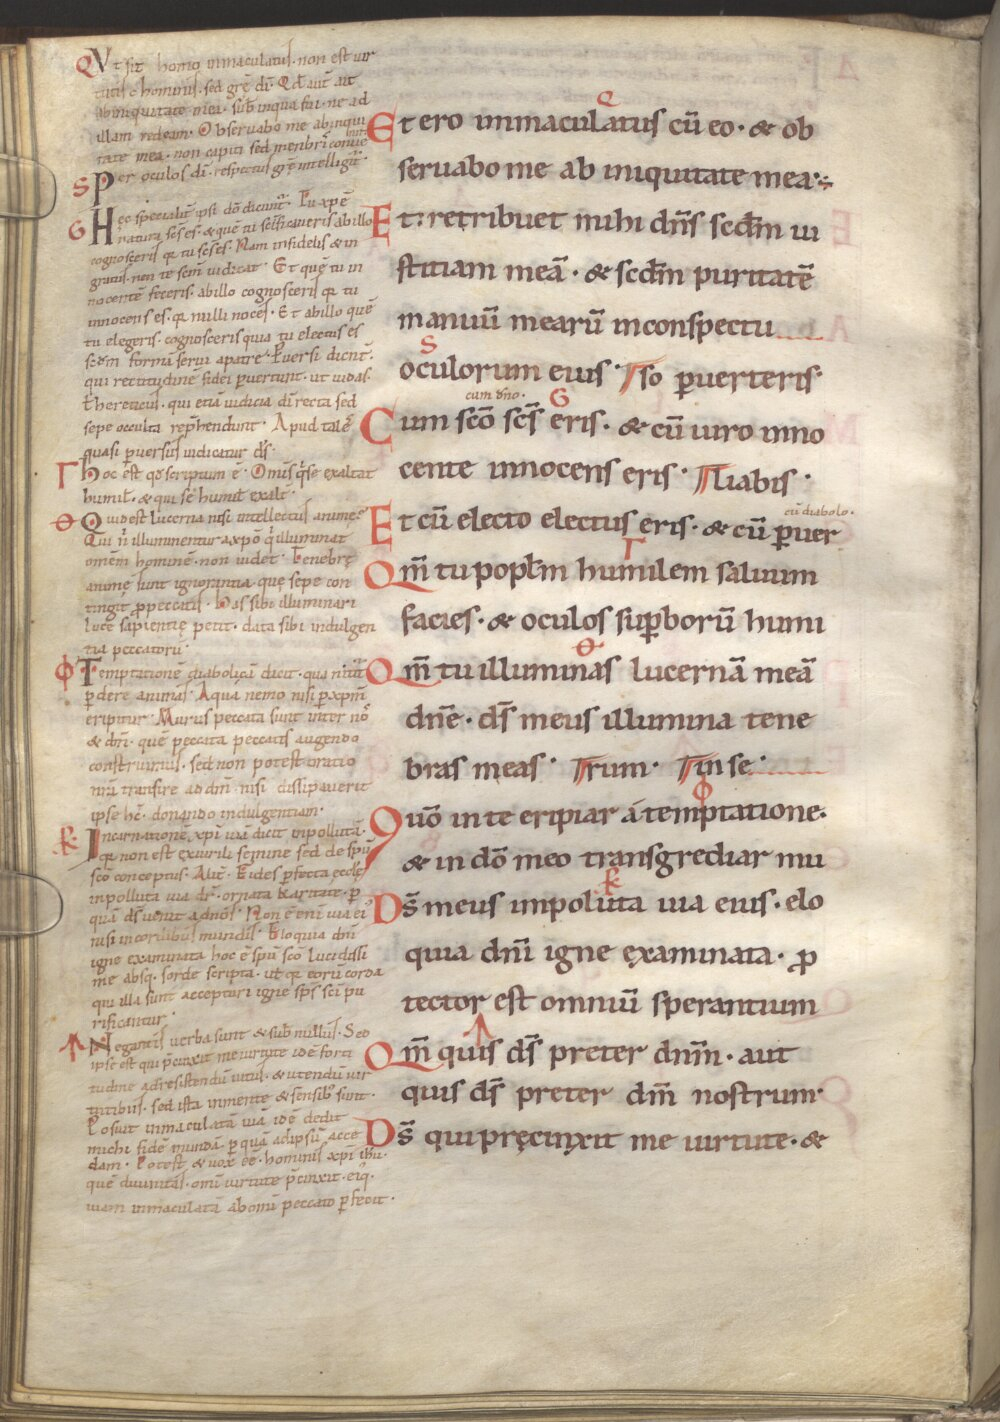 QVt sit homo inmaculatus. non est uir
tutis hominis. sed grē dī. Qd aut ait
ab iniquitate mea. sub inqua fui. ne ad
illam redeam. Obseruabo me ab iniqui
tate mea. non capiti sed menbri conue
S Per oculos dī. respectus grē intelligit.
G Hec specialit ipsi dō dicunt. Tu xpē
natura scs es. & quē tu scificaueris ab illo
cognosceris qr tu scs es. Nam infidelis & in
gratus. non te scm iudicat. Et quē tu in
nocentē feceris. ab illo cognosceris qr tu
innocens es. qr nulli noces. Et ab illo quē
tu elegeris. cognosceris quia tu electus es
scdm formā serui a patre. Puersi dicunt.
qui rectitudinē fidei puertunt. ut iudas.
& heretici. qui etiā iudicia dī recta sed
sepe occulta reprhendunt. Apud talē
quasi puersus iudicatur ds.
Γ hoc est qd scriptum ē. Omis q se exaltat
humil. & qui se humil exalt.
Θ Quid est lucerna nisi intellectus animę.
Qui n illuminentur a xpo q illuminat
omēm hominē. non uidet. Tenebrę
animę sunt ignorantia. quę sepe con
tingit p peccatis. Has sibi illuminari
luce sapientię petit. data sibi indulgen
tia peccatorū.
Φ Temptationē diabolicā dicit. qua nitit
pdere animas. A qua nemo nisi p xpm
eripitur. Murus peccata sunt inter nos
& dm. quē peccata peccatis augendo
construimus. sed non potest oratio
nra transire ad dm. nisi dissipauerit
ipse hc. donando indulgentiam.
k Incarnationē xpi uiā dicit inpollutā.
qr non est ex uirili semine sed de spu
sco conceptus. Alit. Fides pfecta eccłę
inpolluta uia dr. ornata karitate. p
quā ds uenit ad nos. Non ē eni uia ei
nisi in cordibus mundis. Eloquia dni
igne examinata hoc ē spu sco lucidissi
me absq. sorde scripta. ut qr eorū corda
qui illa sunt accepturi igne sps sci pu
rificantur.
↑ Negantis uerba sunt & sub nullus. Sed
ipse est qui pcinxit me uirtute idē forti
tudine ad resistendū uitiis. & utendū uir
tutibus. sed ista in mente & sensib sunt.
Posuit inmaculatā uiā idē dedit
michi fidē mundā p quā ad ipsū acce
dam. Potest & uox eē. hominis xpi ihu.
quē diuinitas. omi uirtute pcinxit. eiq.
uiam inmaculatā ab omi peccato pfecit.
Q
Et ero inmaculatus cū eo. & ob
seruabo me ab iniquitate mea.
Et retribuet mihi dn̄s scdm iu
stitiam meā. & scdm puritatē
manuū mearū in conspectu
S
oculorum eius. so puerteris.
cum dn̄o. G
Cum scō scs̄ eris. & cū uiro inno
cente innocens eris. liabis.
cū diabolo.
Et cū electo electus eris. & cū puer
Γ
Qm̄ tu poplm humilem saluum
facies. & oculos supborū humi
Θ
Qm̄ tu illuminas lucernā meā
dnē. ds̄ meus illumina tene
bras meas. rum. in se.
Φ
Quō in te eripiar á temptatione.
& in dō meo transgrediar mu
k
Ds̄ meus impolluta uia eius. elo
quia dnī igne examinata. p
tector est omniū sperantium
↑
Qm̄ quis ds̄ preter dnm̄. aut
quis ds̄ preter dm̄ nostrum
Ds̄ qui pręcinxit me uirtute. &